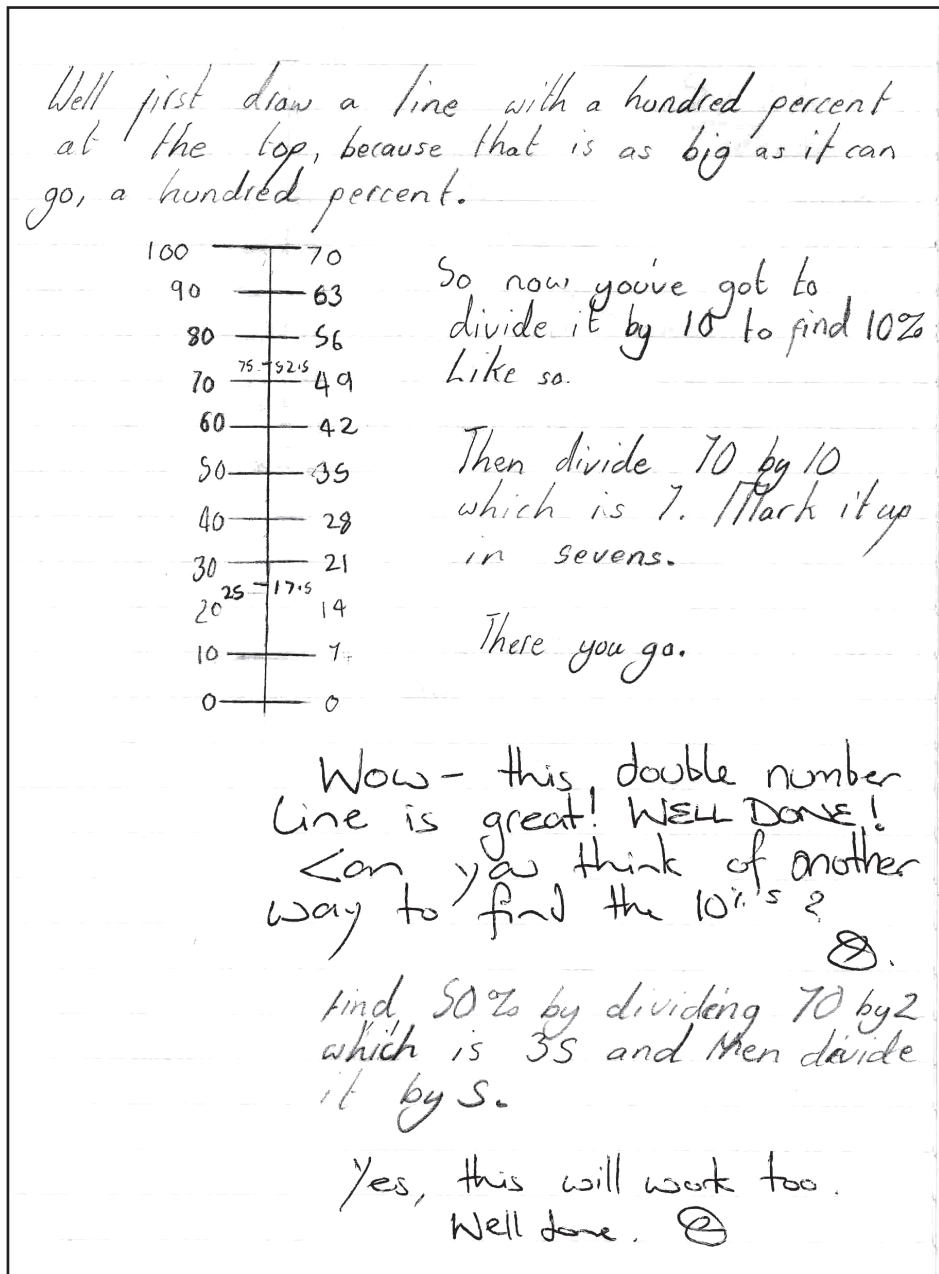 Well first draw a line with a hundred percent
at the top, because that is as big as it can
go, a hundred percent.
100 70
90 63
80 56
75 52.5
70 49
60 42
50 35
40 28
30 21
25 17.5
20 14
10 7
0 0
So now you've got to
divide it by 10 to find 10%
Like so.
Then divide 70 by 10
which is 7. Mark it up
in sevens.
There you go.
Wow - this double number
line is great! WELL DONE!
Can you think of another
way to find the 10%'s?
Find 50% by dividing 70 by 2
which is 35 and then divide
it by 5.
Yes, this will work too.
Well done.